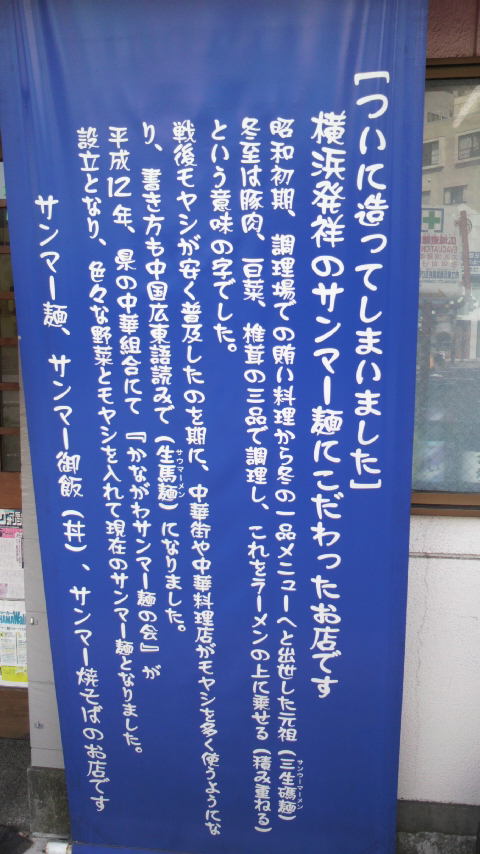 [ついに造ってしまいました]
横浜発祥のサンマー麺にこだわったお店です
昭和初期、調理場での賄い料理から冬の一品メニューへと出世した元祖(三生碼麺)
サンウーマーメン
冬至は豚肉、百菜、椎茸の三品で調理し、これをラーメンの上に乗せる(積み重ねる)
という意味の字でした。
戦後モヤシが安く普及したのを期に、中華街や中華料理店がモヤシを多く使うようにな
り、書き方も中国広東語読みで(生馬麺)になりました。
サウマーメン
平成12年、県の中華組合にて『かながわサンマー麺の会』が
設立となり、色々な野菜とモヤシを入れて現在のサンマー麺となりました。
サンマー麺、サンマー御飯(丼)、サンマー焼そばのお店です